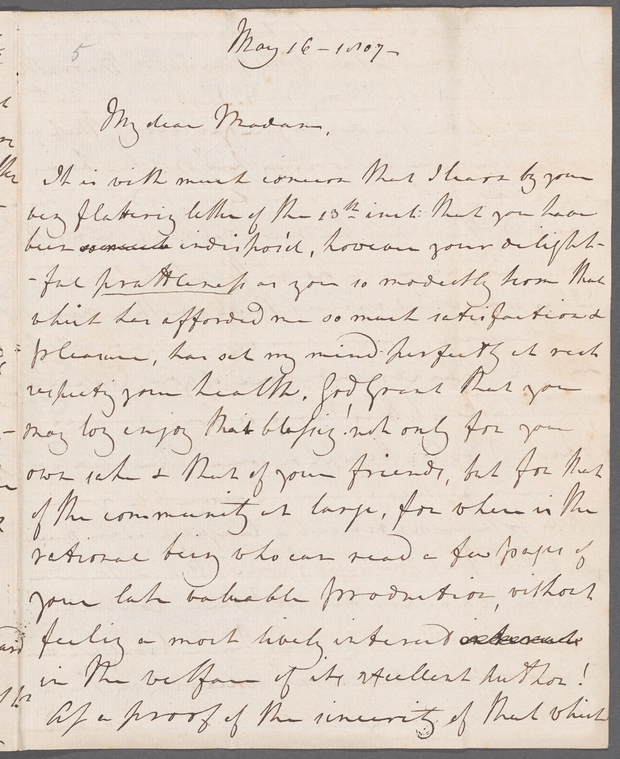 5
May 16 - 1807 -
My dear Madam,
It is with much concern that I learn by your
very flattering letter of the 13th inst: that you have
been indispos'd, however your delight-
-ful prattleness as you so modestly term that
which has afforded me so much satisfaction &
pleasure, has set my mind perfectly at rest
respecting your health. God Grant that you
may long enjoy that blessing! not only for your
own sake & that of your friends, but for that
of the community at large, for where is the
rational being who can read a few pages of
your late valuable production, without
feeling a most lively interest
in the welfare of its excellent Author!
As a proof of the sincerity of that which